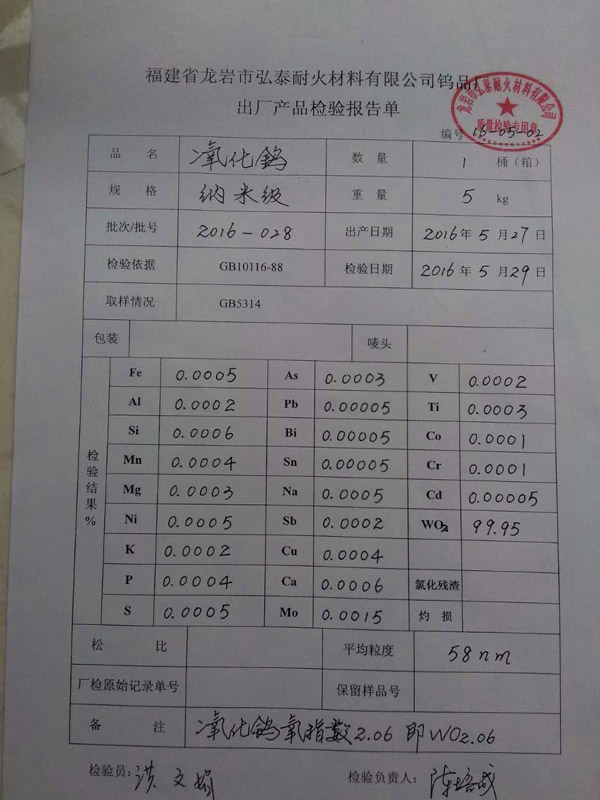 福建省龙岩市弘泰耐火材料有限公司钨品厂
出厂产品检验报告单
龙岩市弘泰耐火材料有限公司
质量检验专用章
编号 16-05-02
品 名 氧化鎢 数 量 1 桶（箱）
规 格 纳米级 重 量 5 kg
批次/批号 2016-028 出产日期 2016年5月27日
检验依据 GB10116-88 检验日期 2016年5月29日
取样情况 GB5314
包装 唛头
检验结果%
Fe 0.0005 As 0.0003 V 0.0002
Al 0.0002 Pb 0.00005 Ti 0.0003
Si 0.0006 Bi 0.00005 Co 0.0001
Mn 0.0004 Sn 0.00005 Cr 0.0001
Mg 0.0003 Na 0.0005 Cd 0.00005
Ni 0.0005 Sb 0.0002 WO2 99.95
K 0.0002 Cu 0.0004
P 0.0004 Ca 0.0006 氯化残渣
S 0.0005 Mo 0.0015 灼 损
松 比 平均粒度 58nm
厂检原始记录单号 保留样品号
备 注 氧化鎢氧指数2.06 即WO2.06
检验员：洪文娟 检验负责人：陈培成